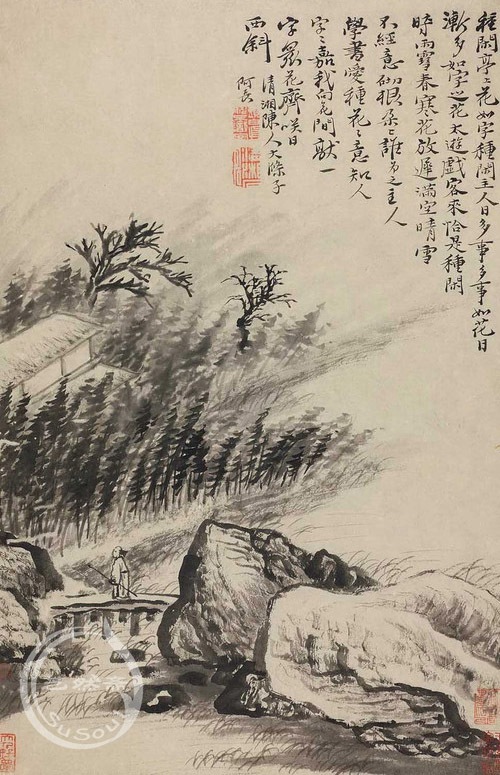 種閑亭上花如字種閑主人日多事多事如花日
漸多如字之花太遊戲客來恰是種閑
時雨雪春寒花放遲滿空晴雪
不經意砌根朵〻誰為之主人
學書愛種花〻意知人
字〻嘉我向花間獻一
字眾花齊咲日
西斜
清湘陳人大滌子
阿長
SuSoul